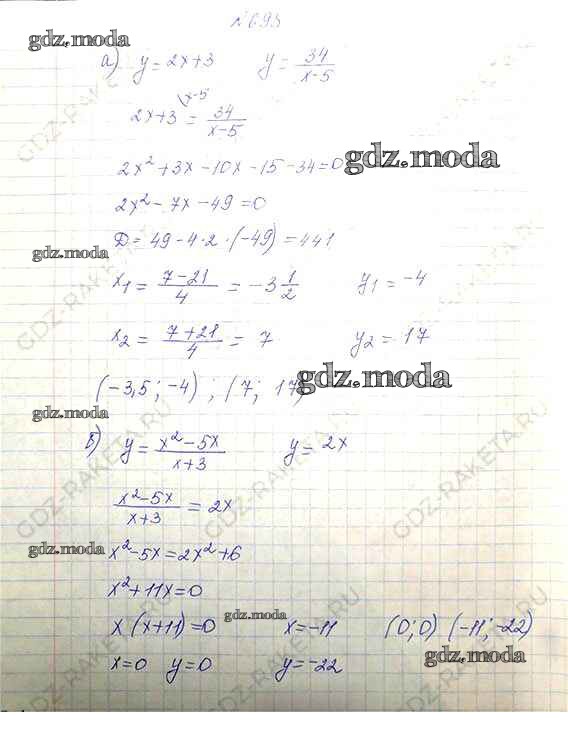 № 698
gdz.moda
а) y = 2x+3 y = 34/(x-5)
2x+3 \x-5 = 34/(x-5)
2x² + 3x - 10x - 15 - 34 = 0 gdz.moda
2x² - 7x - 49 = 0
D = 49 - 4·2·(-49) = 441
gdz.moda
x₁ = (7-21)/4 = -3 1/2 y₁ = -4
x₂ = (7+21)/4 = 7 y₂ = 17
(-3,5; -4) ; (7; 17) gdz.moda
gdz.moda
б) y = (x²-5x)/(x+3) y = 2x
(x²-5x)/(x+3) = 2x
gdz.moda x²-5x = 2x²+6
x²+11x=0
x(x+11)=0 gdz.moda x=-11 (0;0) (-11; -22)
x=0 y=0 y=-22 gdz.moda
GDZ-RAKETA.RU
GDZ-RAKETA.RU
GDZ-RAKETA.RU
GDZ-RAKETA.RU
GDZ-RAKETA.RU